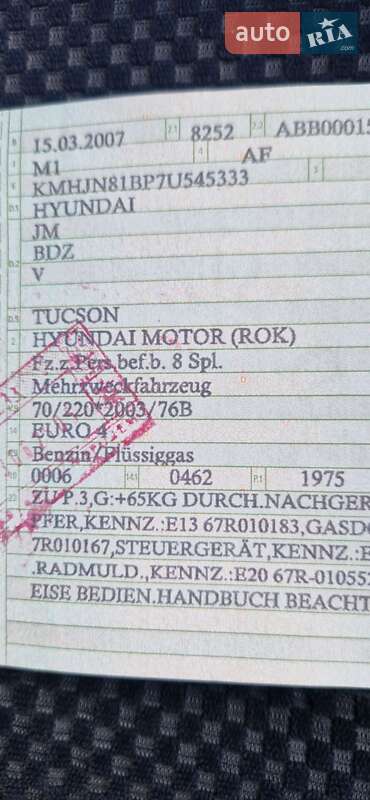 auto RIA .com
B 15.03.2007 2.1 8252 2.2 ABB00015
J M1 4 AF
E KMHJN81BP7U545333 3
D.1 HYUNDAI
JM
BDZ
D.2 V
D.3 TUCSON
2 HYUNDAI MOTOR (ROK)
Fz.z.Pers.bef.b. 8 Spl.
Mehrzweckfahrzeug
70/220*2003/76B
14 EURO 4
Benzin/Flüssiggas
10 0006 14.1 0462 P.1 1975
22 ZU P.3,G:+65KG DURCH.NACHGER
PFER,KENNZ.:E13 67R010183,GASDO
7R010167,STEUERGERÄT,KENNZ.:E
.RADMULD.,KENNZ.:E20 67R-01055
EISE BEDIEN.HANDBUCH BEACHT